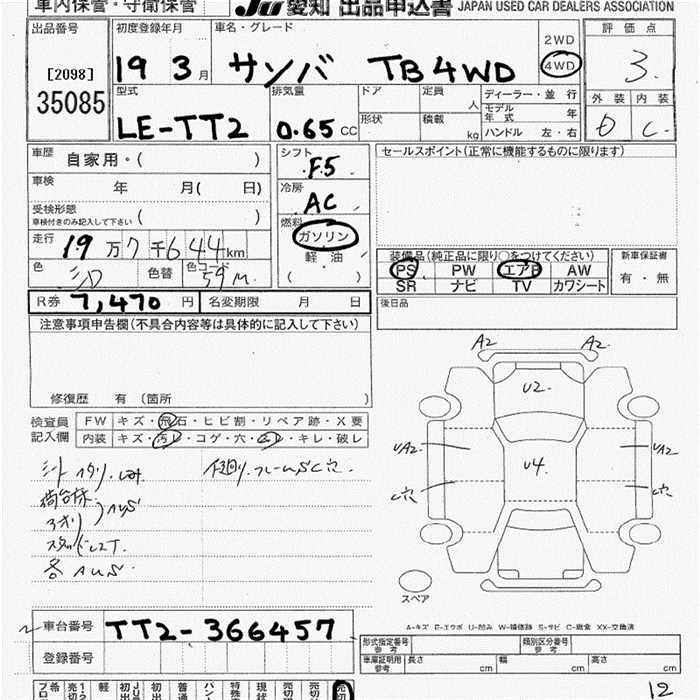 車内保管・守衛保管 JU 愛知 出品申込書 JAPAN USED CAR DEALERS ASSOCIATION
出品番号 初度登録年月 車名・グレード 評価点
[2098] 19 3月 サンバ TB 4WD 2WD 4WD 3.
35085
型式 排気量 ドア 定員 人 ディーラー・並行 外装 内装
LE-TT2 0.65 CC 形状 積載 kg モデル年式 年 ハンドル 左・右 D C
車歴 自家用・( ) シフト F5 セールスポイント(正常に機能するものに限ります)
車検 年 月( 日) 冷房 AC
受検形態 ( )
車検付きのみ記入して下さい
燃料 ガソリン
走行 19万7千644km 軽油
装備品(純品に限り○をつけてください) 新車保証書
色 色替 色コード 59M ( )
PS PW エアB AW 有・無
SR ナビ TV カワシート
R券 7,470円 名変期限 月 日 後日品
注意事項申告欄(不具合内容等は具体的に記入して下さい)
修復歴 有 (箇所 )
検査員記入欄 FW キズ・飛石・ヒビ割・リペア跡・X要
内装 キズ・汚レ・コゲ・穴・スレ・キレ・破レ
A2 A2
U2
UA2 U4 UA2
C穴 C穴
シートヘタリ.
荷台床
アオリ AUS
各AUS.
下廻り.フレームSC穴.
スペア
A-キズ E-エクボ U-凹み W-補修跡 S-サビ C-腐食 XX-交換済
車台番号 TT2-366457
登録番号
形式指定番号 参考 類別区分番号 参考
車庫証明用 参考 長さ cm 幅 cm 高さ cm
12